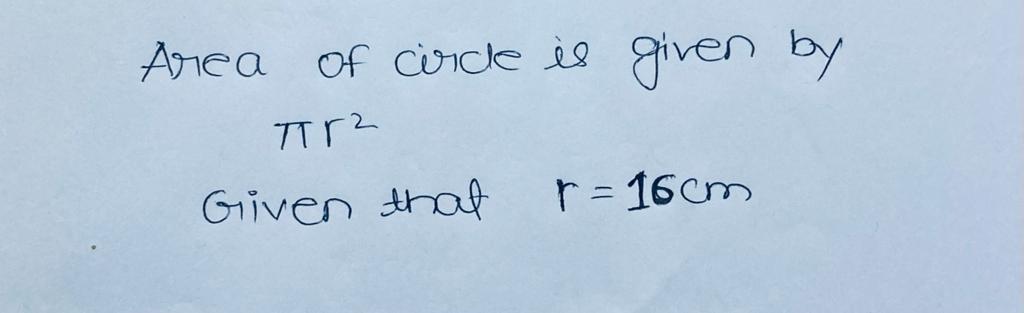 Area of circle is given by
πr²
Given that r = 16cm